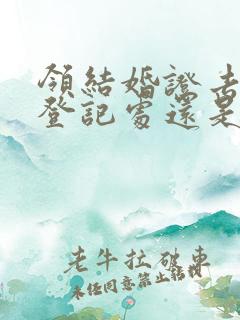 領結婚證去
登記處還是
老牛拉破車
未任同意禁止轉載